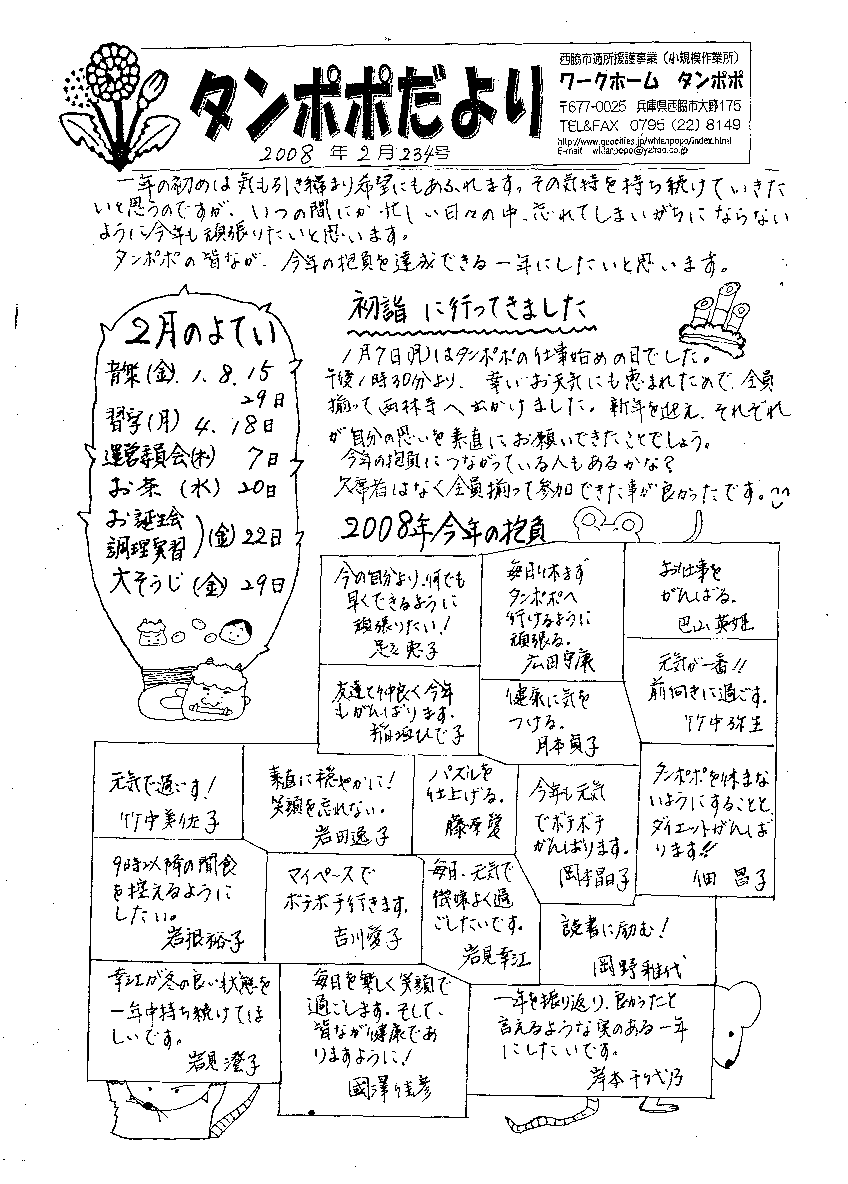 タンポポだより
2008年2月234号
西脇市通所援護事業（小規模作業所）
ワークホーム　タンポポ
〒677-0025　兵庫県西脇市大野175
TEL&FAX　0795（22）8149
http://www.geocities.jp/whtanpopo/index.html
E-mail　whtanpopo@yahoo.co.jp
一年の初めは気も引き締まり希望にもあふれます。その気持を持ち続けていきた
いと思うのですが、いつの間にか忙しい日々の中、忘れてしまいがちにならない
ように今年も頑張りたいと思います。
タンポポの皆なが、今年の抱負を達成できる一年にしたいと思います。
2月のよてい
音楽(金). 1. 8. 15
29日
習字(月) 4. 18日
運営委員会(木) 7日
お茶(水) 20日
お誕生会
調理実習)(金)22日
大そうじ(金)29日
初詣に行ってきました
1月7日(月)はタンポポの仕事始めの日でした。
午後1時30分より、幸いお天気にも恵まれたので、全員
揃って西林寺へ出かけました。新年を迎え、それぞれ
が自分の思いを素直にお願いできたことでしょう。
今年の抱負につながっている人もあるかな？
欠席者はなく全員揃って参加できた事が良かったです。
2008年今年の抱負
今の自分より、何でも
早くできるように
頑張りたい！
足立恵子
毎日休まず
タンポポへ
行けるように
頑張る。
広田守康
お仕事を
がんばる。
巴山英姫
元気が一番!!
前向きに過ごす。
竹中弥生
友達と仲良く今年
もがんばります。
ひで子
健康に気を
つける。
月本貞子
元気で過ごす！
竹中美佐子
素直に穏やかに！
笑顔を忘れない。
岩田逸子
パズルを
仕上げる。
藤原愛
今年も元気
でボチボチ
がんばります。
岡本昌子
タンポポを休まな
いようにすることと
ダイエットがんば
ります!!
佃　昌子
9時以降の間食
を控えるように
したい。
岩根裕子
マイペースで
ボチボチ行きます。
吉川愛子
毎日、元気で
機嫌よく過
ごしたいです。
岩見幸江
読書に励む！
岡野雅代
幸江が冬の良い状態を
一年中持ち続けてほ
しいです。
岩見澄子
毎日を楽しく笑顔で
過ごします。そして、
皆なが健康であ
りますように！
國澤佳彦
一年を振り返り、良かったと
言えるような実のある一年
にしたいです。
岸本千代乃